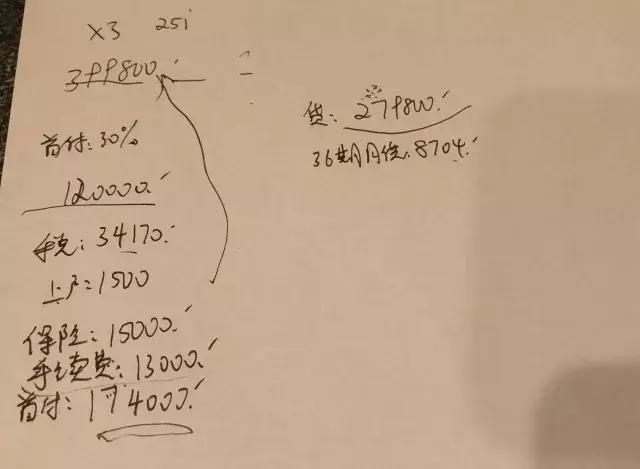 X3 25i
399800
首付:30%
120000
税:34170
上户:1500
保险:15000
手续费:13000
首付:174000
贷:279800
36期月供:8704